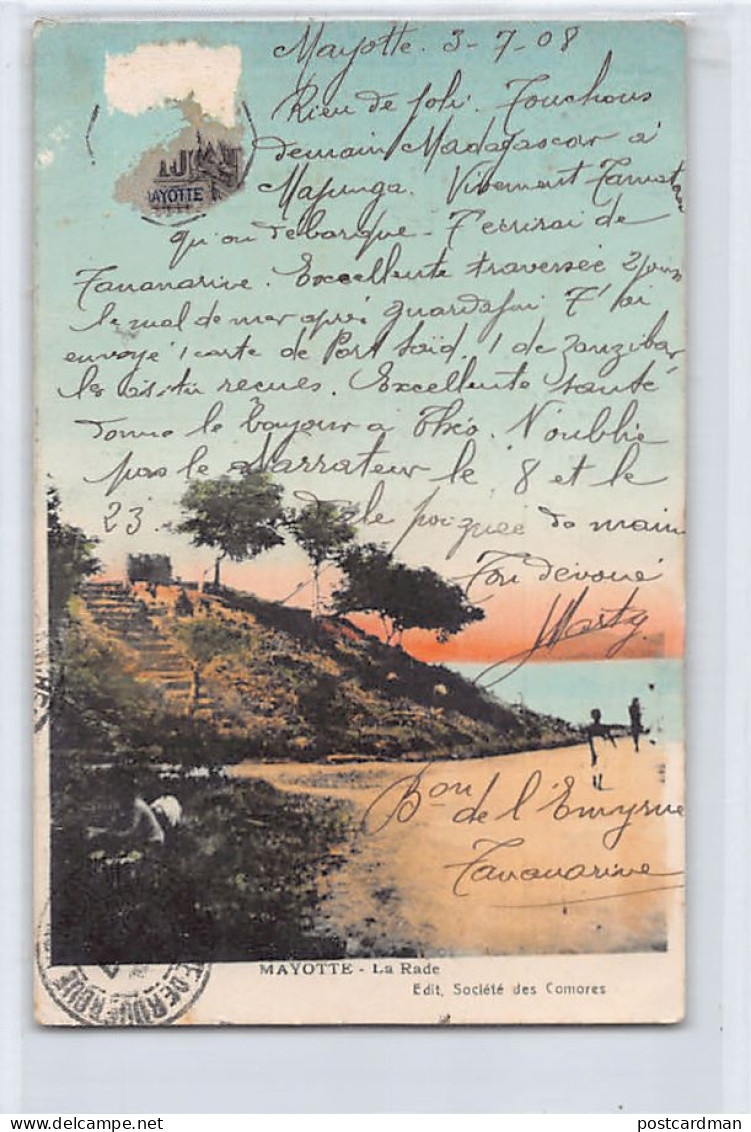 Mayotte. 3-7-08
Rien de joli. Touchons
demain Madagascar à
Majunga. Vivement Tamatave
MAYOTTE
qu'on débarque. T'écrirai de
Tananarive. Excellente traversée 2 jours
le mal de mer après Guardafui T'ai
envoyé 1 carte de Port Saïd. 1 de Zanzibar
les as-tu reçues. Excellente santé
donne le bonjour à Théo. N'oublie
pas le Narrateur le 8 et le
23. de le poignée de main
Ton dévoué
Marty
Bon de l'Emyrne
Tananarive
MAYOTTE - La Rade
Edit. Société des Comores
postcardman